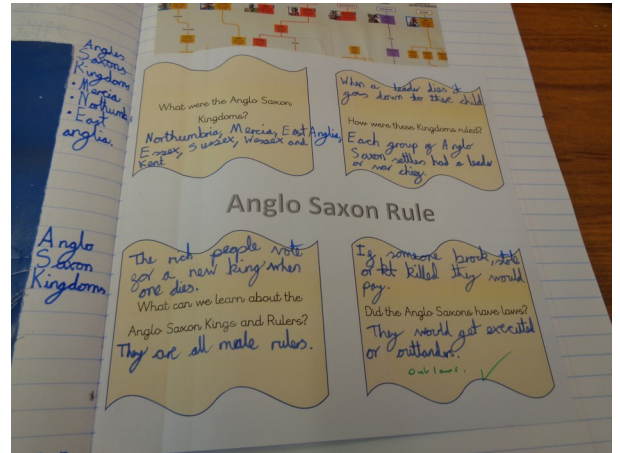 Angles
Saxons
Kingdoms
• Mercia
• Northumb
• East
anglia.
What were the Anglo Saxon
Kingdoms?
Northumbria, Mercia, East Anglia,
Essex, Sussex, Wessex and
Kent.
When a leader dies it
goes down to their child
How were these Kingdoms ruled?
Each group of Anglo
Saxon settles had a leader
or war chieg.
Anglo Saxon Rule
Anglo
Saxon
Kingdoms
The rich people vote
for a new king when
one dies.
What can we learn about the
Anglo Saxon Kings and Rulers?
They are all male rulers.
If someone brock, stole
or killed they would
pay.
Did the Anglo Saxons have laws?
They would get executed
or outlanders.
outlaws. ✓